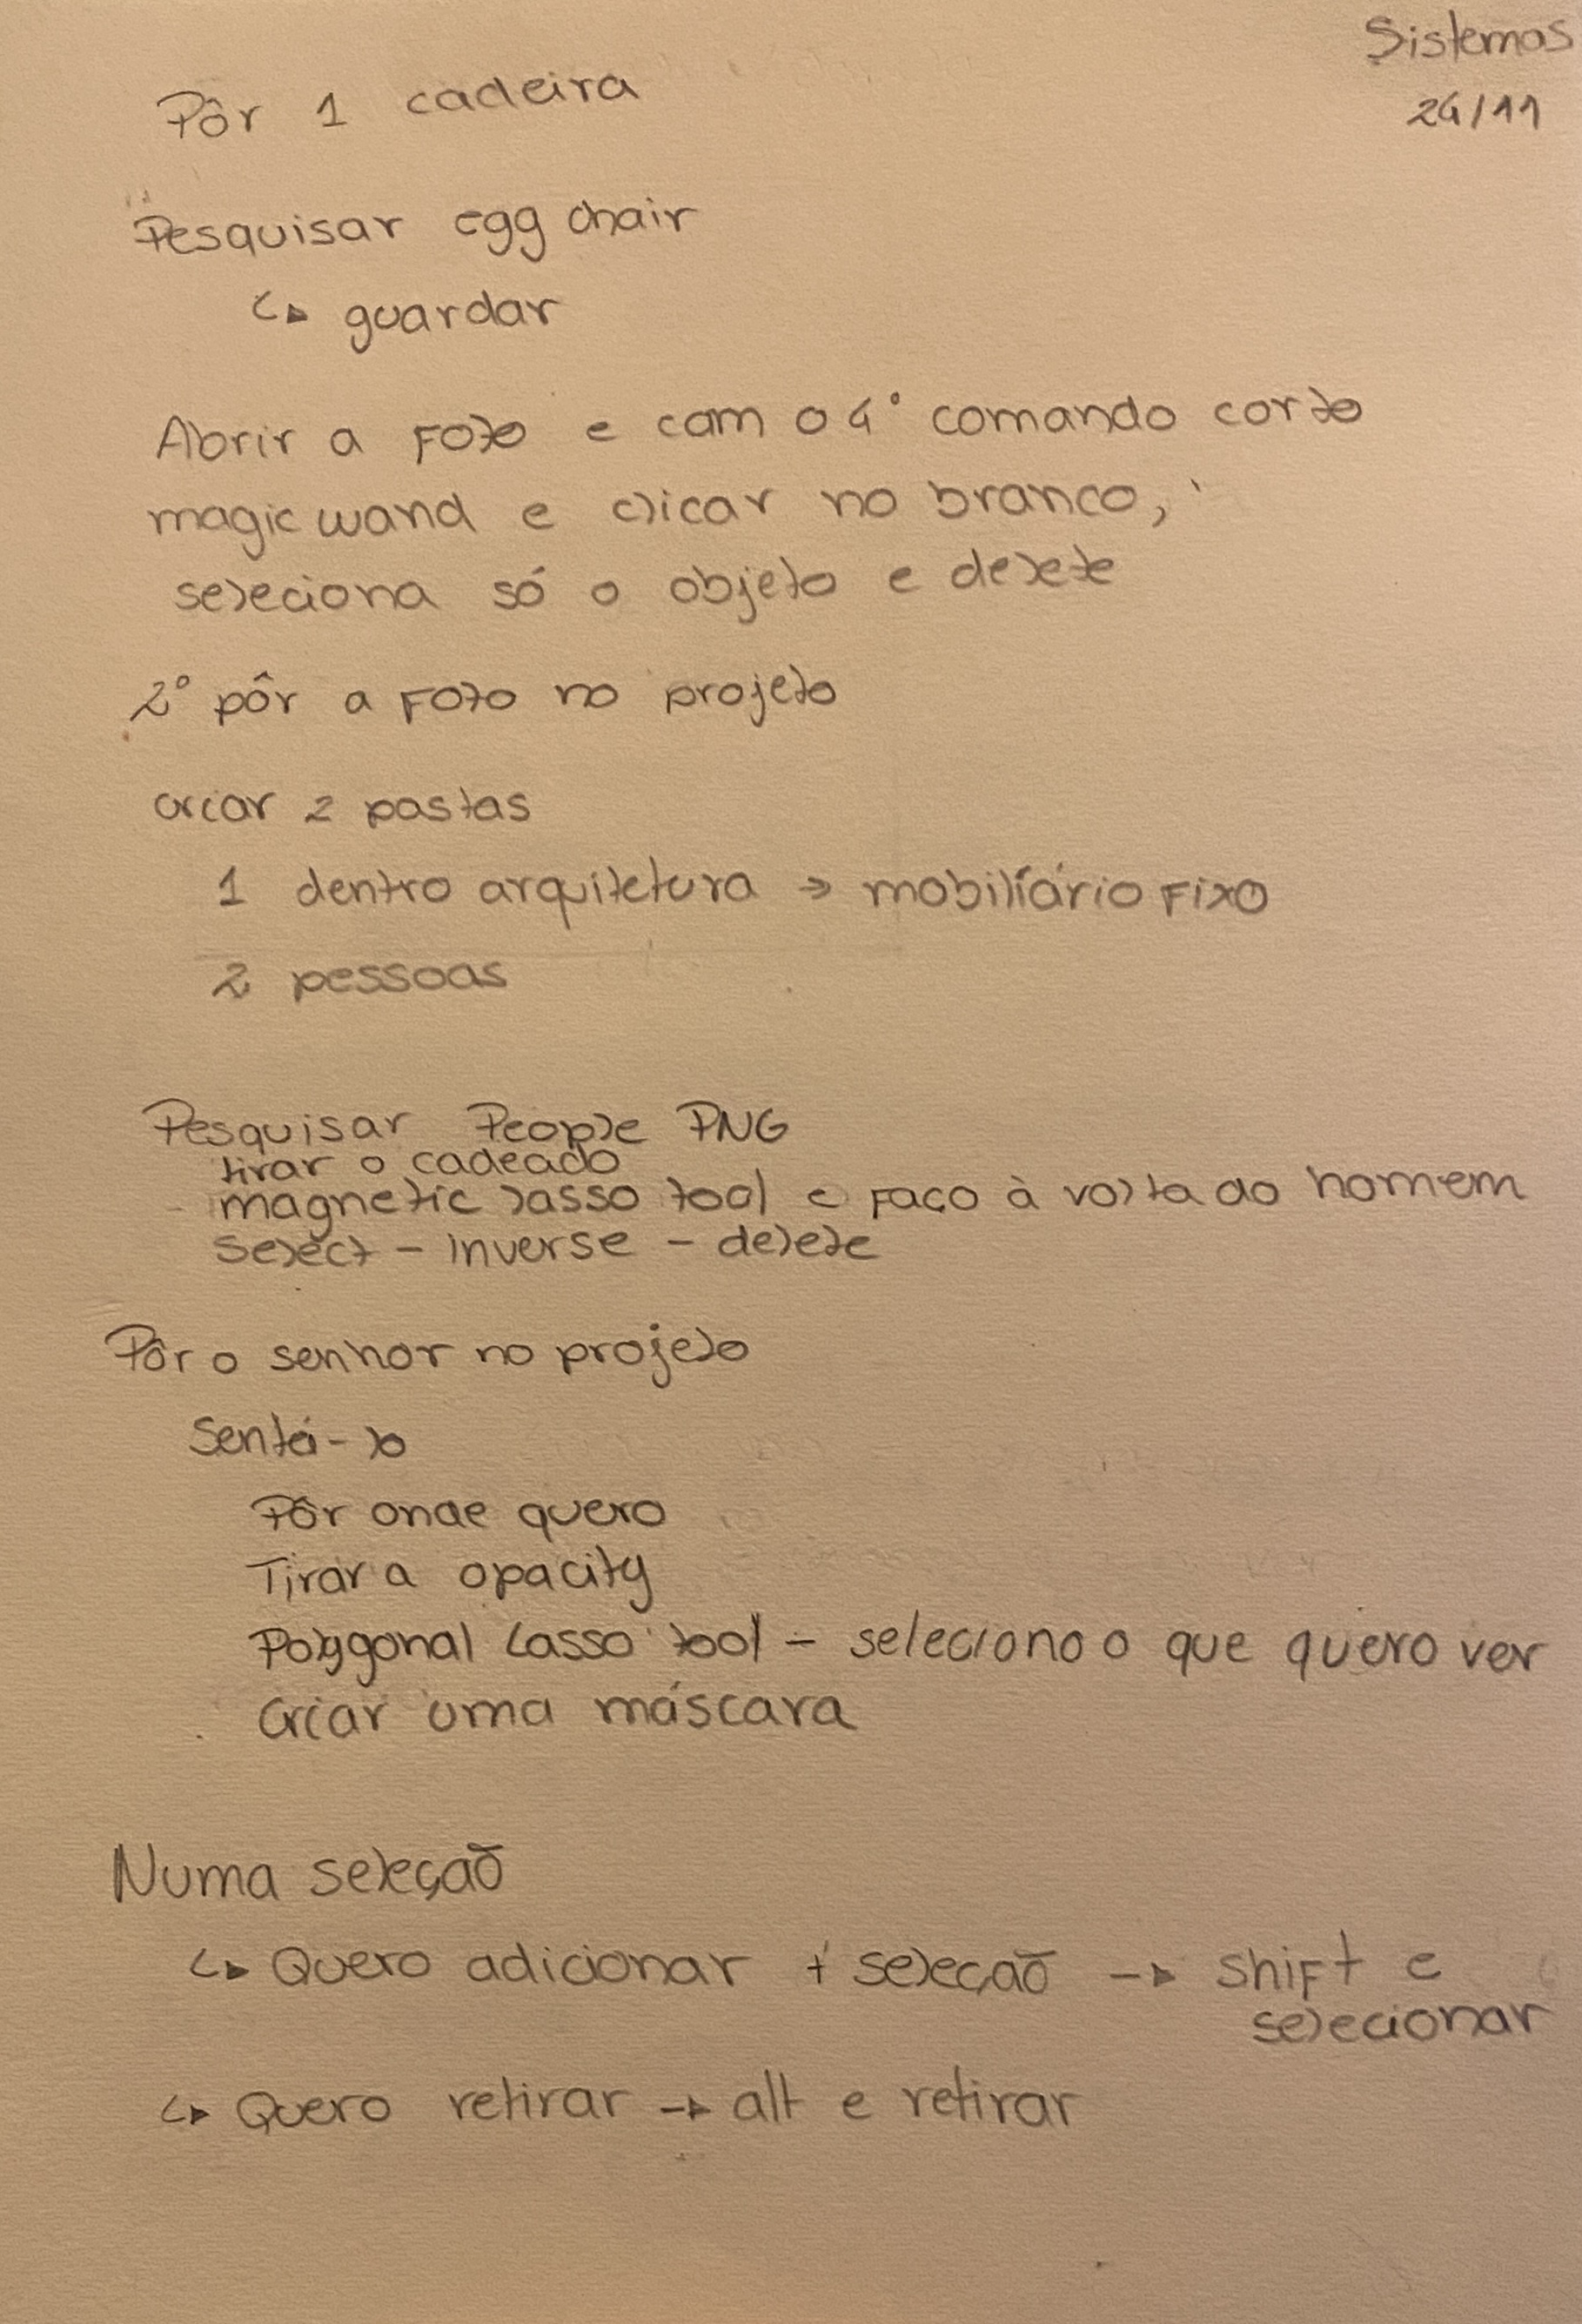 Sistemas
24/11
Pôr 1 cadeira
Pesquisar egg chair
↳ guardar
Abrir a foto e com o 4º comando corto
magic wand e clicar no branco,
seleciona só o objeto e delete
2º pôr a foto no projeto
criar 2 pastas
1 dentro arquitetura → mobiliário fixo
2 pessoas
Pesquisar People PNG
tirar o cadeado
magnetic lasso tool e faço à volta do homem
Select - inverse - delete
Pôr o senhor no projeto
Sentá-lo
Pôr onde quero
Tirar a opacity
Polygonal Lasso tool - seleciono o que quero ver
Criar uma máscara
Numa seleção
↳ Quero adicionar + seleção → shift e
selecionar
↳ Quero retirar → alt e retirar